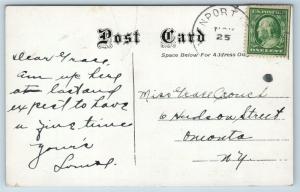 Post Card
Space Below For Address Only
NPORT
NOV
25
U.S. POSTAGE
ONE CENT
Dear Grace
Am up here
at last and
expect to have
a fine time
yours
Miss Grace Crouch
6 Hudson Street
Oneonta
N.Y.